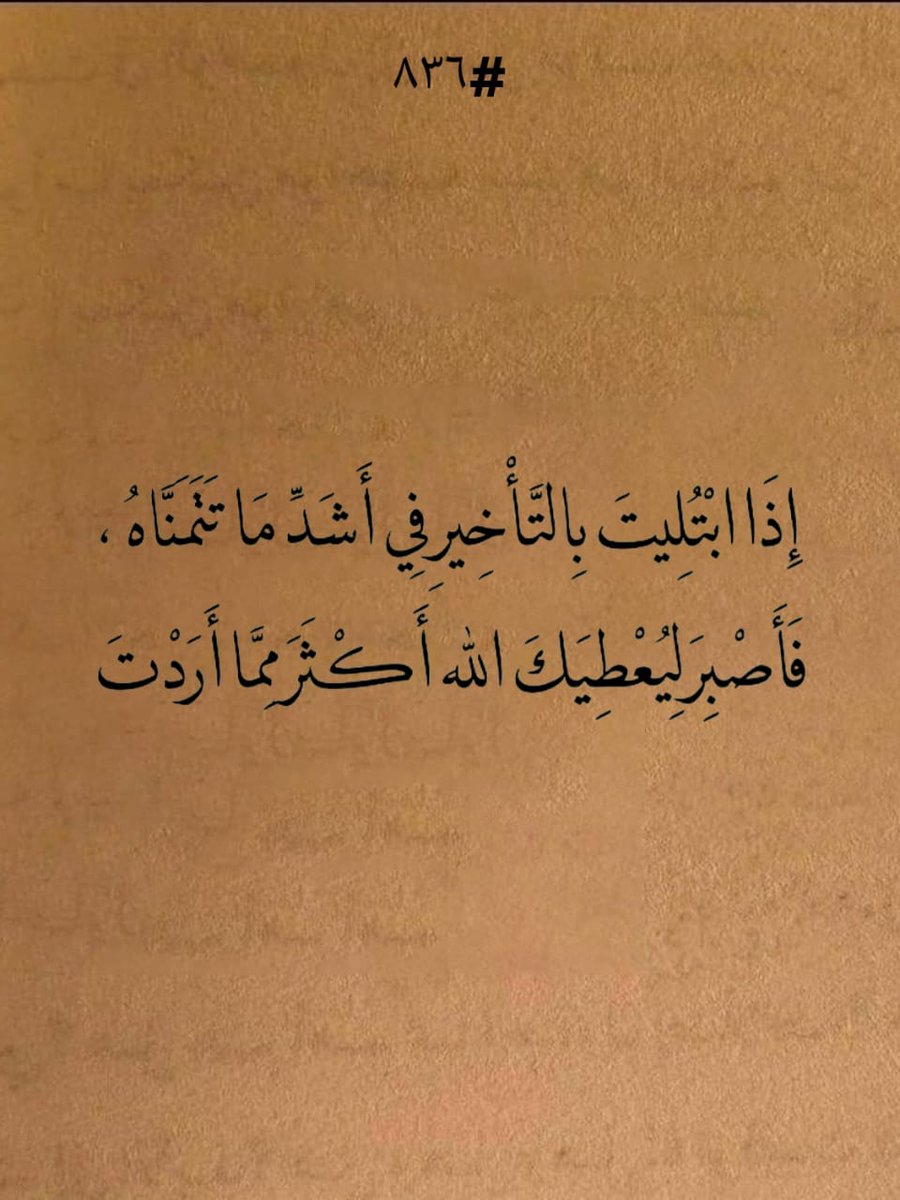 #٨٣٦
إِذَا ابْتُلِيتَ بِالتَّأْخِيرِ فِي أَشَدِّ مَا تَتَمَنَّاهُ ،
فَأَصْبِرَ لِيُعْطِيَكَ الله أَكْثَرَ مِمَّا أَرَدْتَ